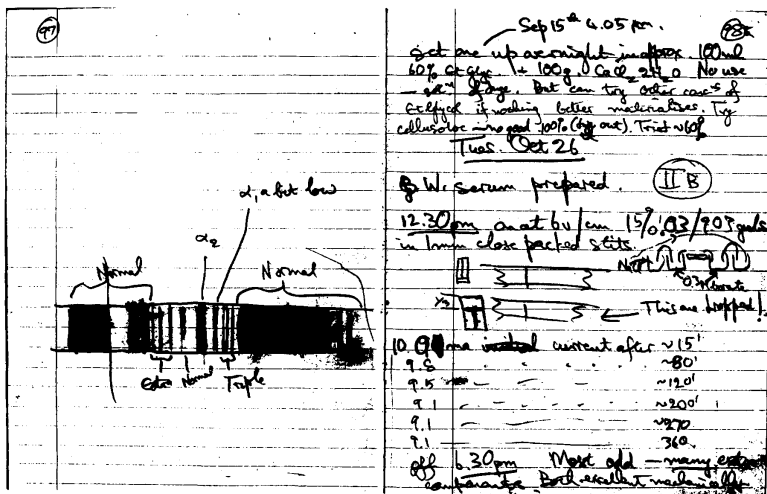 97
α, a bit low
α2
Normal
Normal
Extra Normal Triple
98
Sep 15th 4.05 pm.
Set one up overnight in approx. 100ml
60% Et Glyc + 100g. CaCl2 2H2O No use
But can try other concns of
Et Glycol if nothing better materialises. Try
cellusolve - no good - 100% (dry out). Tried ~60%
Tues. Oct 26
B.W. serum prepared. II B
12.30pm on at 6v/cm 15% .03/.03 gels
in 1mm close packed slits.
.03M borate
This one dropped!
10. ma initial current after ~15'
9.8 ~80'
9.5 ~120'
9.1 ~200'
9.1 ~270
9.1 360
off 6.30pm Most odd - many extra
components. Both excellent mechanically